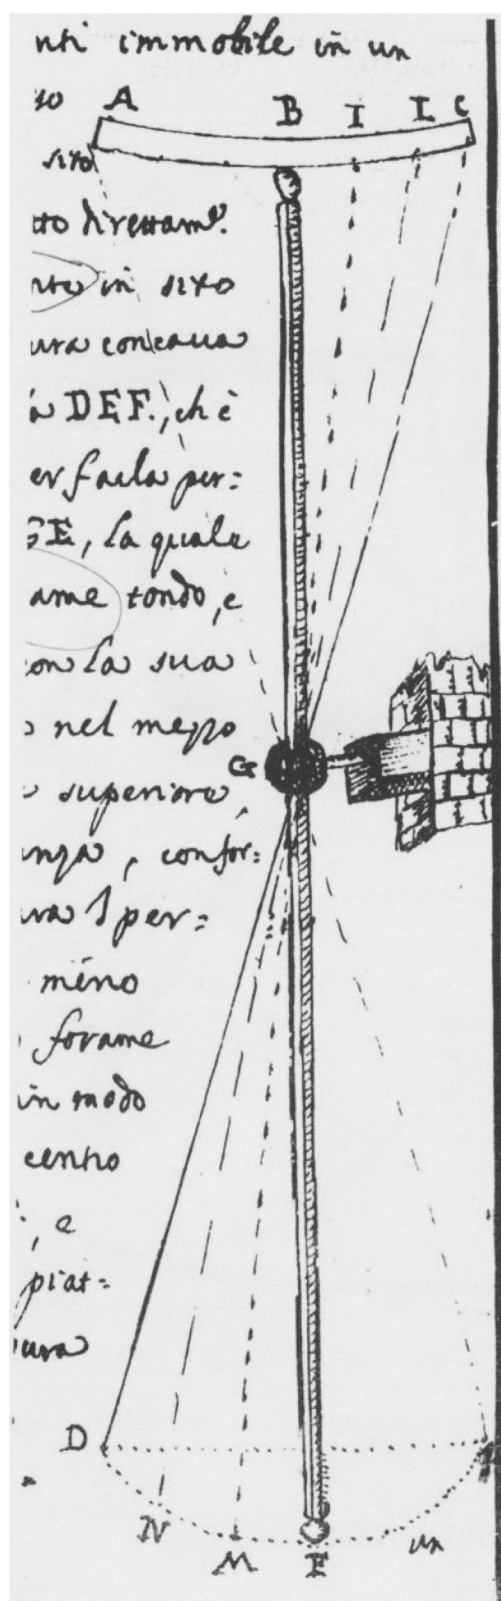 nti immobile in un
so A B I L C
sito
tto direttam.e
nte in sito
ura concaua
a DEF., ch è
er facla per=
GE, la quale
ame tondo, e
on la sua
o nel mezzo
G
e superiore,
anza, confor=
ura l per=
meno
forame
in modo
centro
, e
piat=
ura
D
N M E un